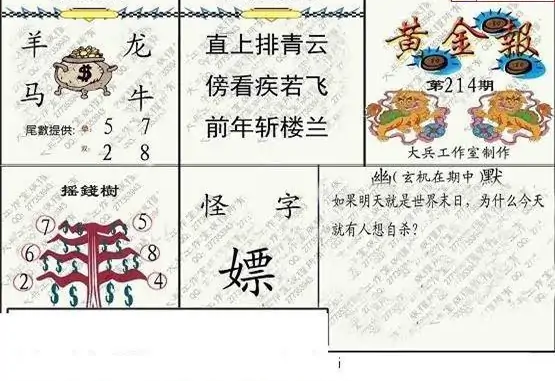 羊 龙
$
马 牛
尾數提供: 单: 5 7
双: 2 8
直上排青云
傍看疾若飞
前年斩楼兰
黄金報
第214期
大兵工作室制作
摇錢樹
7 5
6 8
2 4
$ $ $ $ $ $
怪 字
嫖
幽(玄机在期中 默
如果明天就是世界末日，为什么今天
就有人想自杀?
i